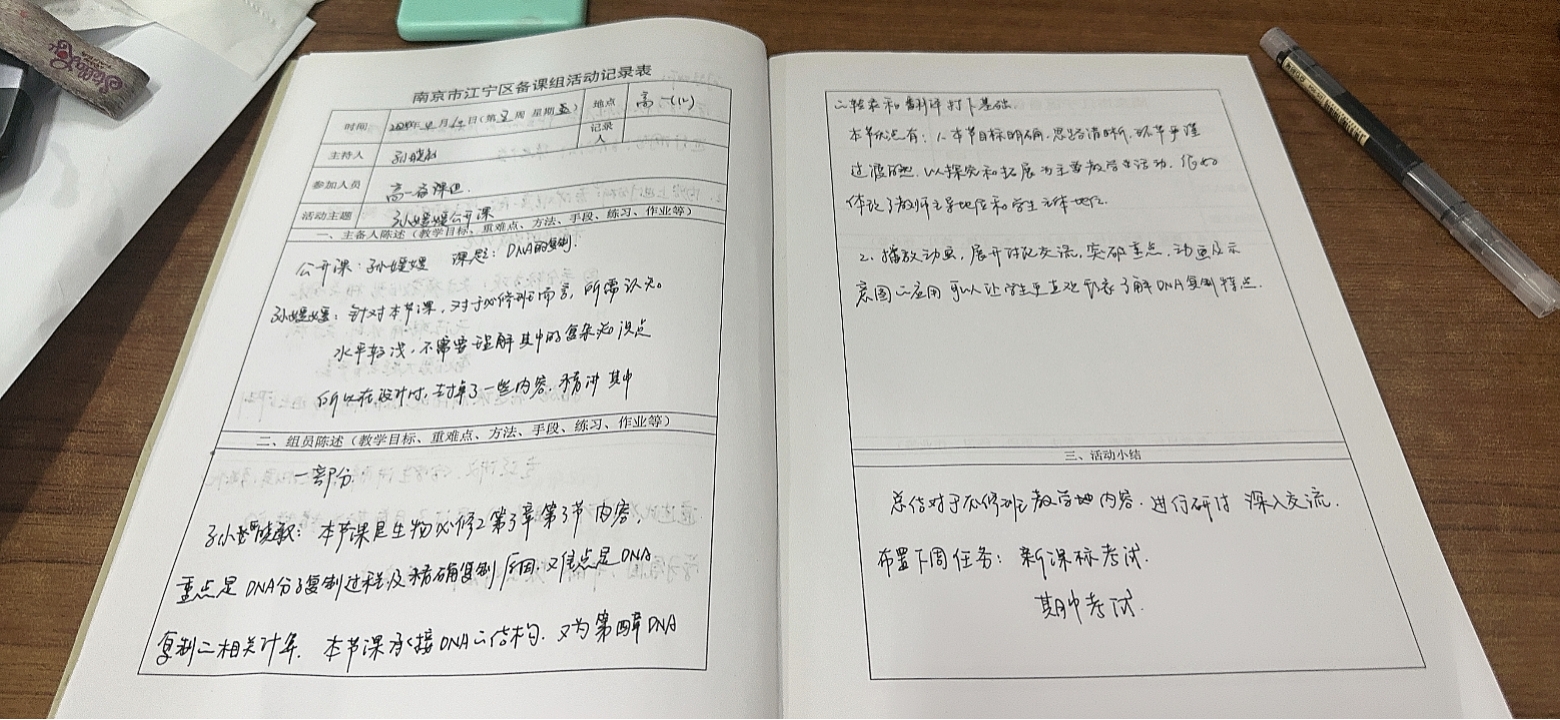 南京市江宁区备课组活动记录表
时间 年 月 日(第 周 星期五) 地点 高一(11)
记录人
主持人
参加人员 高一备课组
活动主题 孙媛媛公开课
一、主备人陈述(教学目标、重难点、方法、手段、练习、作业等)
公开课:孙媛媛 课题:DNA的复制.
孙媛媛:针对本节课,对于必修班而言,所需认知
水平较浅,不需要理解其中的复杂知识点
所以在设计时,去掉了一些内容.精讲其中
二、组员陈述(教学目标、重难点、方法、手段、练习、作业等)
一部分.
本节课是生物必修2第3章第3节内容,
重点是DNA分子复制过程及精确复制原因.难点是DNA
复制的相关计算. 本节课承接DNA的结构.又为第四章DNA
的转录和翻译打下基础.
本节课还有:1.本节目标明确.思路清晰,环节严谨
过渡自然.以探究和拓展为主要教学生活动.很好
体现了教师主导地位和学生主体地位.
2.播放动画,展开讨论交流,突破重点.动画及示
意图的应用可以让学生更直观 了解DNA复制特点.
三、活动小结
总结对于必修班教学地内容.进行研讨 深入交流.
布置下周任务:新课标考试.
期中考试.